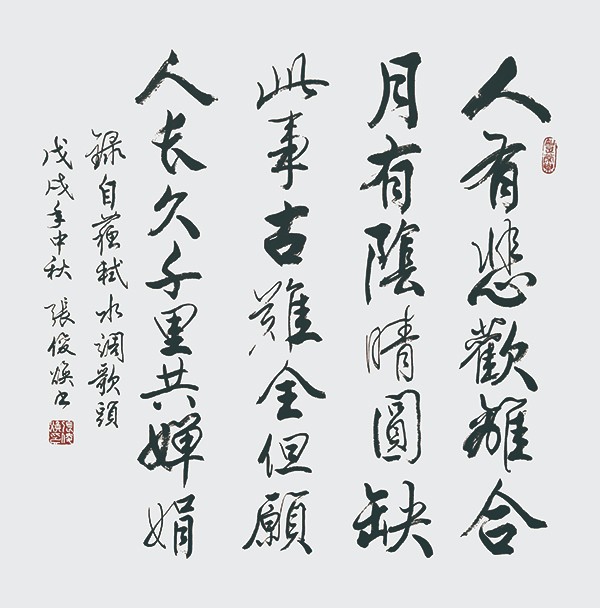 人有悲歡離合
月有陰晴圓缺
此事古難全但願
人長久千里共嬋娟
錄自蘇軾水調歌頭
戊戌年中秋 張俊煥書